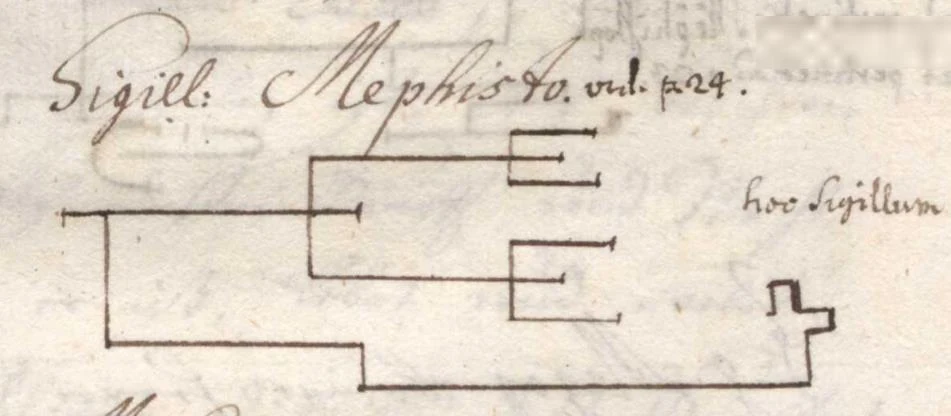 Sigill: Mephisto. vid. p. 24.
hoc Sigillum